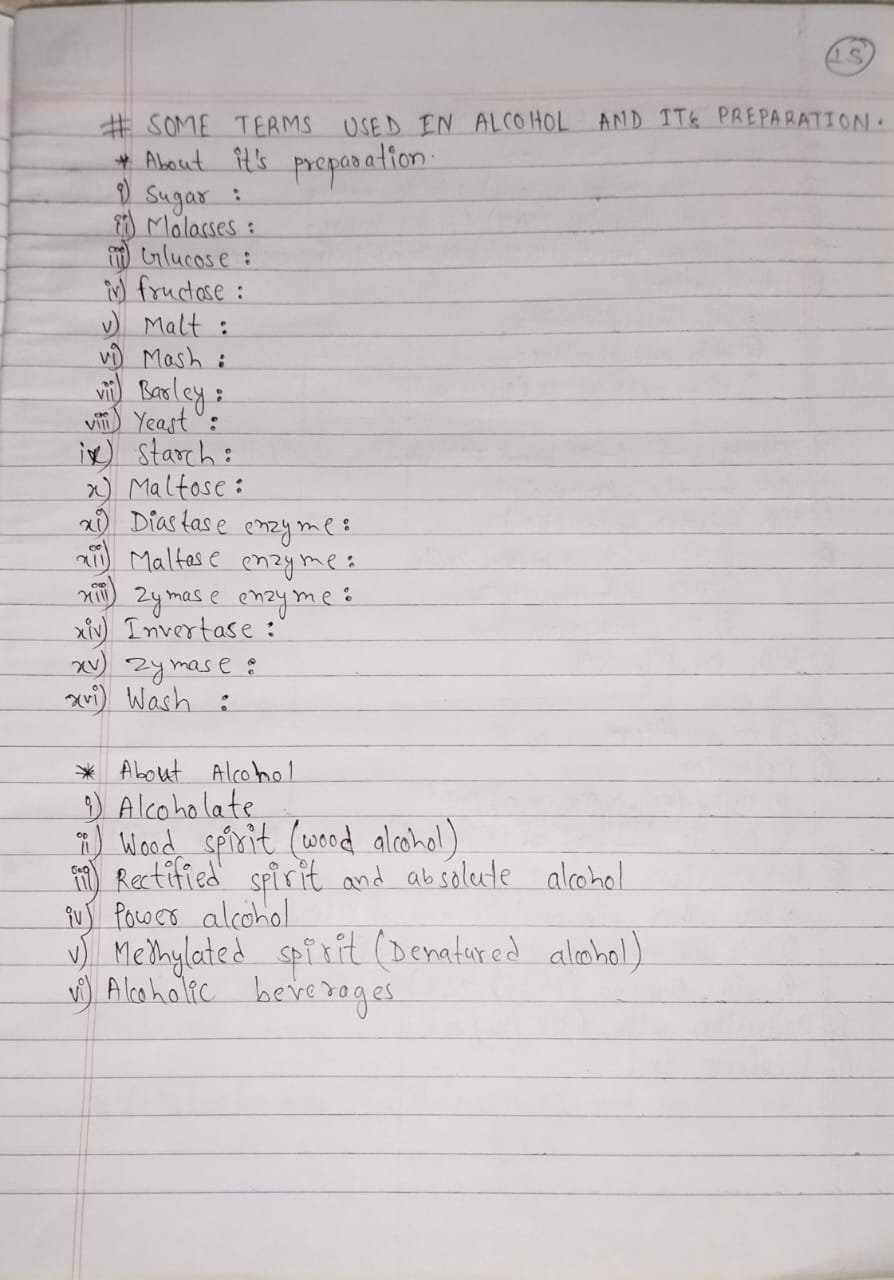 15
# SOME TERMS USED IN ALCOHOL AND ITS PREPARATION.
* About it's preparation.
i) Sugar :
ii) Molasses :
iii) Glucose :
iv) fructose :
v) Malt :
vi) Mash :
vii) Barley :
viii) Yeast :
ix) Starch :
x) Maltose :
xi) Diastase enzyme :
xii) Maltase enzyme :
xiii) Zymase enzyme :
xiv) Invertase :
xv) Zymase :
xvi) Wash :
* About Alcohol
i) Alcoholate
ii) Wood spirit (wood alcohol)
iii) Rectified spirit and absolute alcohol
iv) Power alcohol
v) Methylated spirit (Denatured alcohol)
vi) Alcoholic beverages